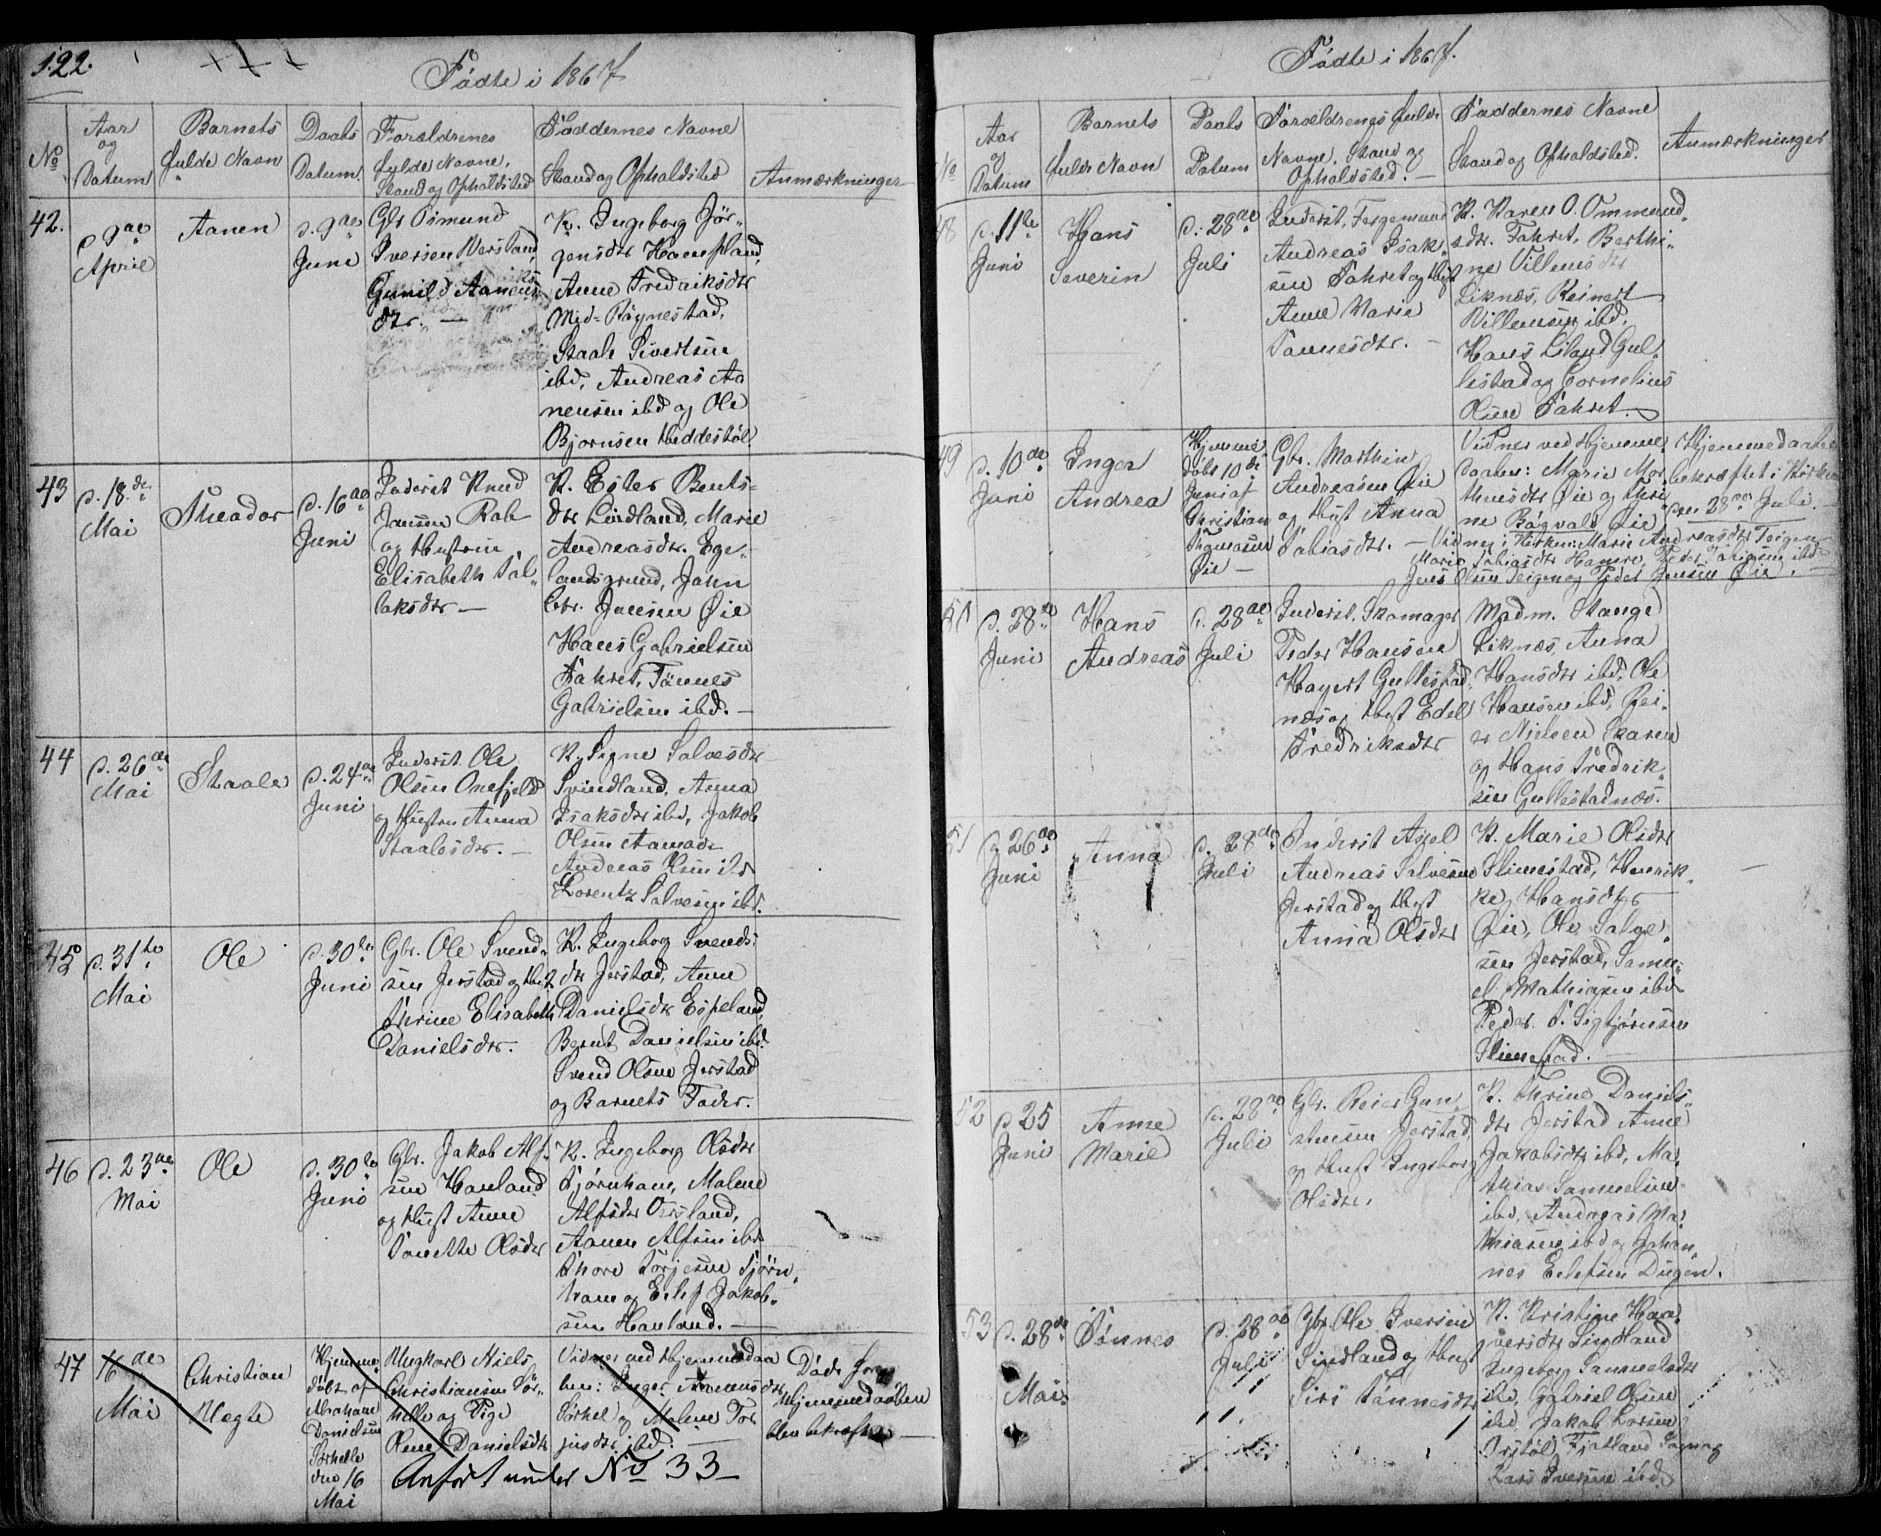 122.
Fødte i 1867
No
Aar
og
Datum
Barnets
fulde Navn
Daabs
Datum
Forældrenes
fylde Navne,
Stand og Opholdsted
Faddernes Navne
Stand og Opholdsted
Anmærkninger
42.
d 9de
April
Aanen
d. 9de
Juni
Gbr Osmund
Iversen
Gunild Aanens
dtr. —
K. Ingeborg Jør-
gensdtr
Anne Fredriksdtr
Med-Røynestad,
Staale Sivertsen
ibd, Andreas Aa
nensen ibd og Ole
Bjornsen Heddestøl
43
d. 18de
Mai
Theador
d. 16de
Juni
Inderst Knud
Jansen
og Hustrue
Elisabeth Sal-
laksdtr —
K. Ester Bents-
dtr Lindland, Marie
Andreasdtr. Ege-
landsgrund, John
Chr. Jansen Øie
Hans Gabrielsen
Fahret, Tønnes
Gabrielsen ibd. —
44
d. 26de
Mai
Staale
d. 24de
Juni
Inderst Ole
Olsen Omefjeld
og Hustru Anna
Staalesdtr. —
K. Signe Salvesdtr
Svindland, Anna
Isaksdtr ibd, Jakob
Olsen Aamodt
Andreas Olsen ibd
Lorentz Salvesen ibd.
45
d. 31te
Mai
Ole
d. 30te
Juni
Gbr. Ole Svend-
sen Jerstad og H
Thrine Elisabeth
Danielsdtr.
K. Ingeborg Svends-
dtr Jerstad, Anne
Danielsdtr Espeland,
Bernt Danielsen ibd.
Svend Olsen Jerstad
og Barnets Fader.
46
d. 23de
Mai
Ole
d. 30te
Juni
Gbr. Jakob Alf-
sen Hauland
og Hust Anne
Tonette Olsdtr
K. Ingeborg Olsdtr
Fjørnham, Malene
Alfsdtr Oversland,
Aanen Alfsen ibd
Thore Torjesen Fjørn-
ham og Eilef Jakob-
sen Hauland. —
47
16de
Mai
Christian
Aegte
Hjemme-
døbt af
Abraham
Danielsen
Sørhelle
den 16
Mai
Ungkarl Niels
Christiansen Sør-
helle og Pige
Rene Danielsdtr
Vidner ved Hjemmedaa
ben: Inger Aanensdtr
Sørhel og Malene Tor
jusdtr ibd. —
Døde før
Hjemmedaaben
blev bekræftet —
Anført under No 33 —
Fødte i 1867.
No
Aar
og
Datum
Barnets
fulde Navn
Daabs
Datum
Forældrenes fulde
Navne. Stand og
Opholdsted. —
Faddernes Navne
Stand og Opholdsted.
Anmærkninger
48
d. 11te
Juni
Hans
Severin
d. 28de
Juli
Inderst, Fergemand
Andreas Isak-
sen Fahret og Hust
Anne Marie
Tønnesdtr. —
K. Karen O. Ommund-
sdtr. Fahret, Berthi-
ne Villumsdtr
Liknæs, Reinert
Villumsen ibd,
Hans Liland Gul-
lestad og Cornelius
Olsen Fahret.
49
d. 10de
Juni
Inger
Andrea
Hjemme-
døbt 10de
Juni af
Christian
Sigmasen
Øie —
Gbr. Marthin
Andreasen Øie
og Hust Anna
Tobiasdtr. —
Vidner ved Hjemme-
daaben: Marie Mor-
thensdtr Øie og Thri-
ne Bøgvald Øie
Hjemmedaaben
bekræftet i Kirken
den 28de Juli.
Vidner i Kirken: Marie Andreasdtr Teigen
Marie Tobiasdtr Hamre, Peder Tobiasen ibd
Jens Olsen Teigen og Peder Jensen Øie. —
50
d. 28de
Juni
Hans
Andreas
d. 28de
Juli
Inderst, Skomager
Peder Hansen
Hayert Gullestad-
næs og Hust Edel
Fredriksdtr
Madm. Stange
Liknæs, Anna
Hansdtr ibd, Ole
Hansen ibd, Rei-
er Nielsen Skaren
og Hans Fredrik-
sen Gullestadnæs.
51
d. 26de
Juni
Anna
d. 28de
Juli
Inderst Axel
Andreas Salvesen
Jerstad og Hust
Anna Olsdtr
K. Marie Olsdtr
Slimestad, Henrik-
ke Hansdtr
Øie, Ole Salve-
sen Jerstad, Samu-
el Mathiasen ibd
Peder S. Sigbjørnsen
Slimestad. —
52
d 25
Juni
Anne
Marie
d. 28de
Juli
Gbr. Reier Gun
stensen Jerstad
og Hust Ingeborg
Olsdtr.
K. Thrine Daniels-
dtr Jerstad Anne
Jakobsdtr ibd, Ma-
thias Samuelsen
ibd, Andreas Ma-
thiasen ibd og Johan-
nes Eilefsen Dugan.
53
d. 28de
Mai
Tønnes
d. 28de
Juli
Gbr. Ole Iversen
Sindland og Hust
Siri Tønnesdtr
K. Kristine Haa-
versdtr Sindland
Ingeborg Samuelsdtr
ibd, Gabriel Olsen
ibd Jakob Larsen
Fjotland Sogn og
Lars Iversen ibd